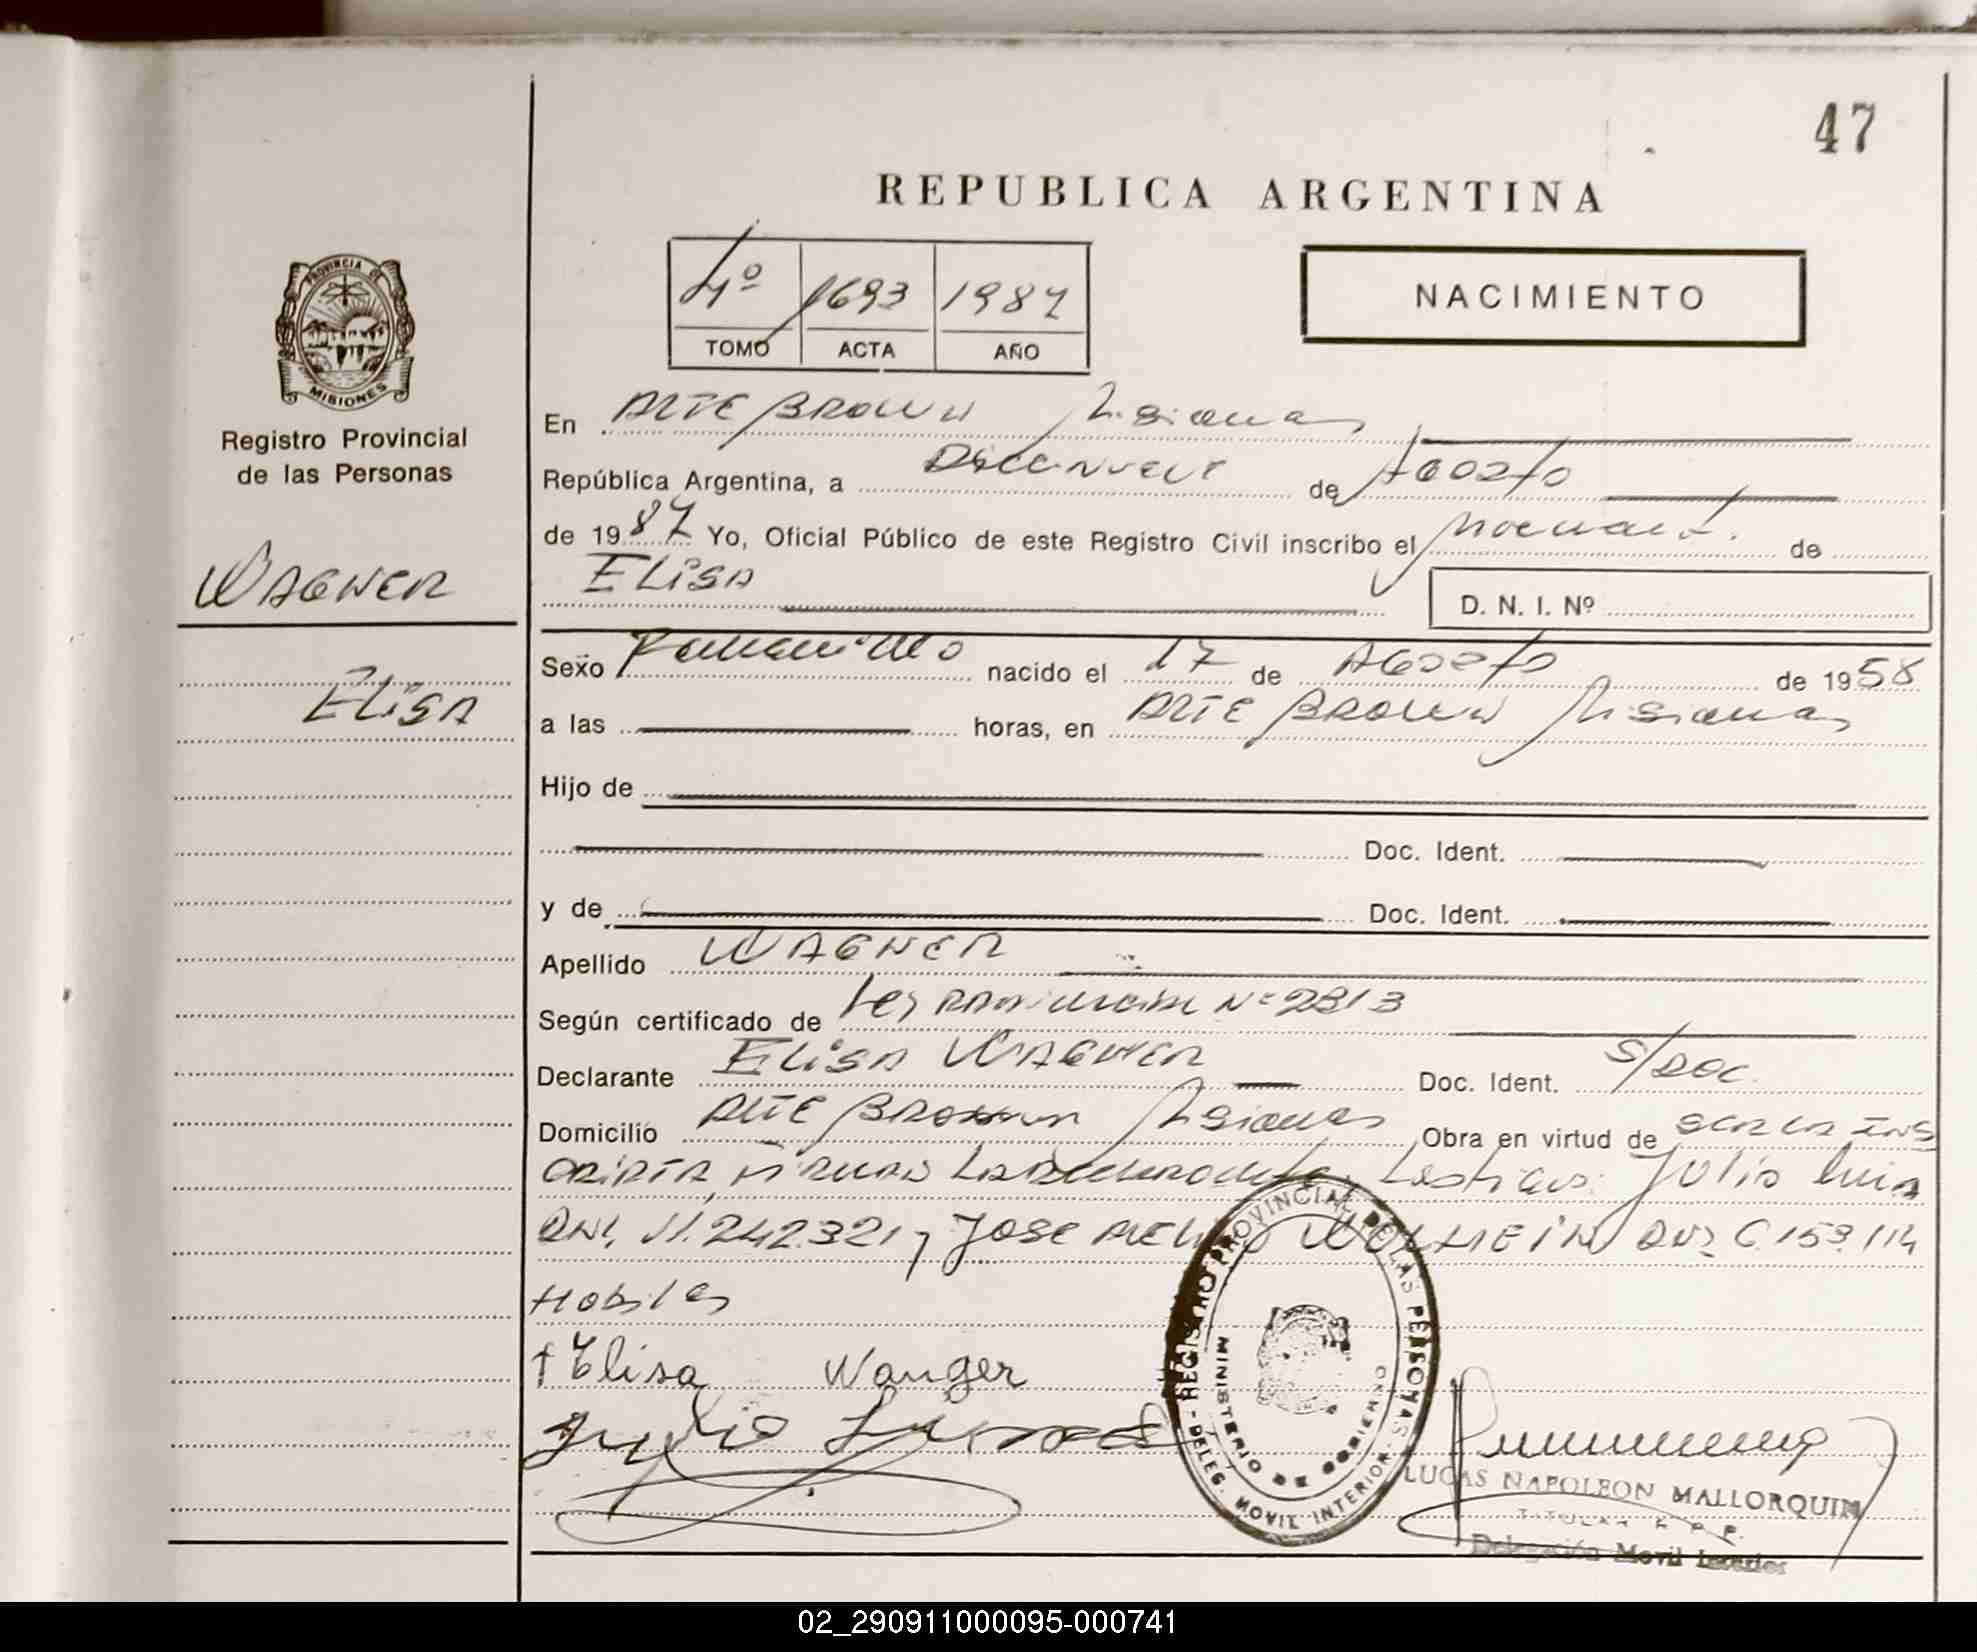 47
REPUBLICA ARGENTINA
4º 1693 1987
TOMO ACTA AÑO
NACIMIENTO
PROVINCIA DE
MISIONES
Registro Provincial
de las Personas
WAGNER
ELISA
En ALTE BROWN Misiones
República Argentina, a Diecinueve de Agosto
de 1987 Yo, Oficial Público de este Registro Civil inscribo el de
ELISA
D. N. I. Nº
Sexo Femenino nacido el 17 de Agosto de 1958
a las horas, en ALTE BROWN Misiones
Hijo de
Doc. Ident.
y de Doc. Ident.
Apellido WAGNER
Según certificado de Ley Provincial Nº 2313
Declarante ELISA WAGNER Doc. Ident. S/DOC.
Domicilio ALTE BROWN Misiones Obra en virtud de SER LA INS
CRIPTA, Testigos: Julio
DNI. 11.242.321 y JOSE DNI 6.153.114
Habiles
†Elisa Wanger
Julio
REGISTRO PROVINCIAL DE LAS PERSONAS - DELEG. MOVIL INTERIOR -
MINISTERIO DE GOBIERNO
LUCAS NAPOLEON MALLORQUIN
TITULAR R. P. P.
Delegación Movil Interior
02_290911000095-000741